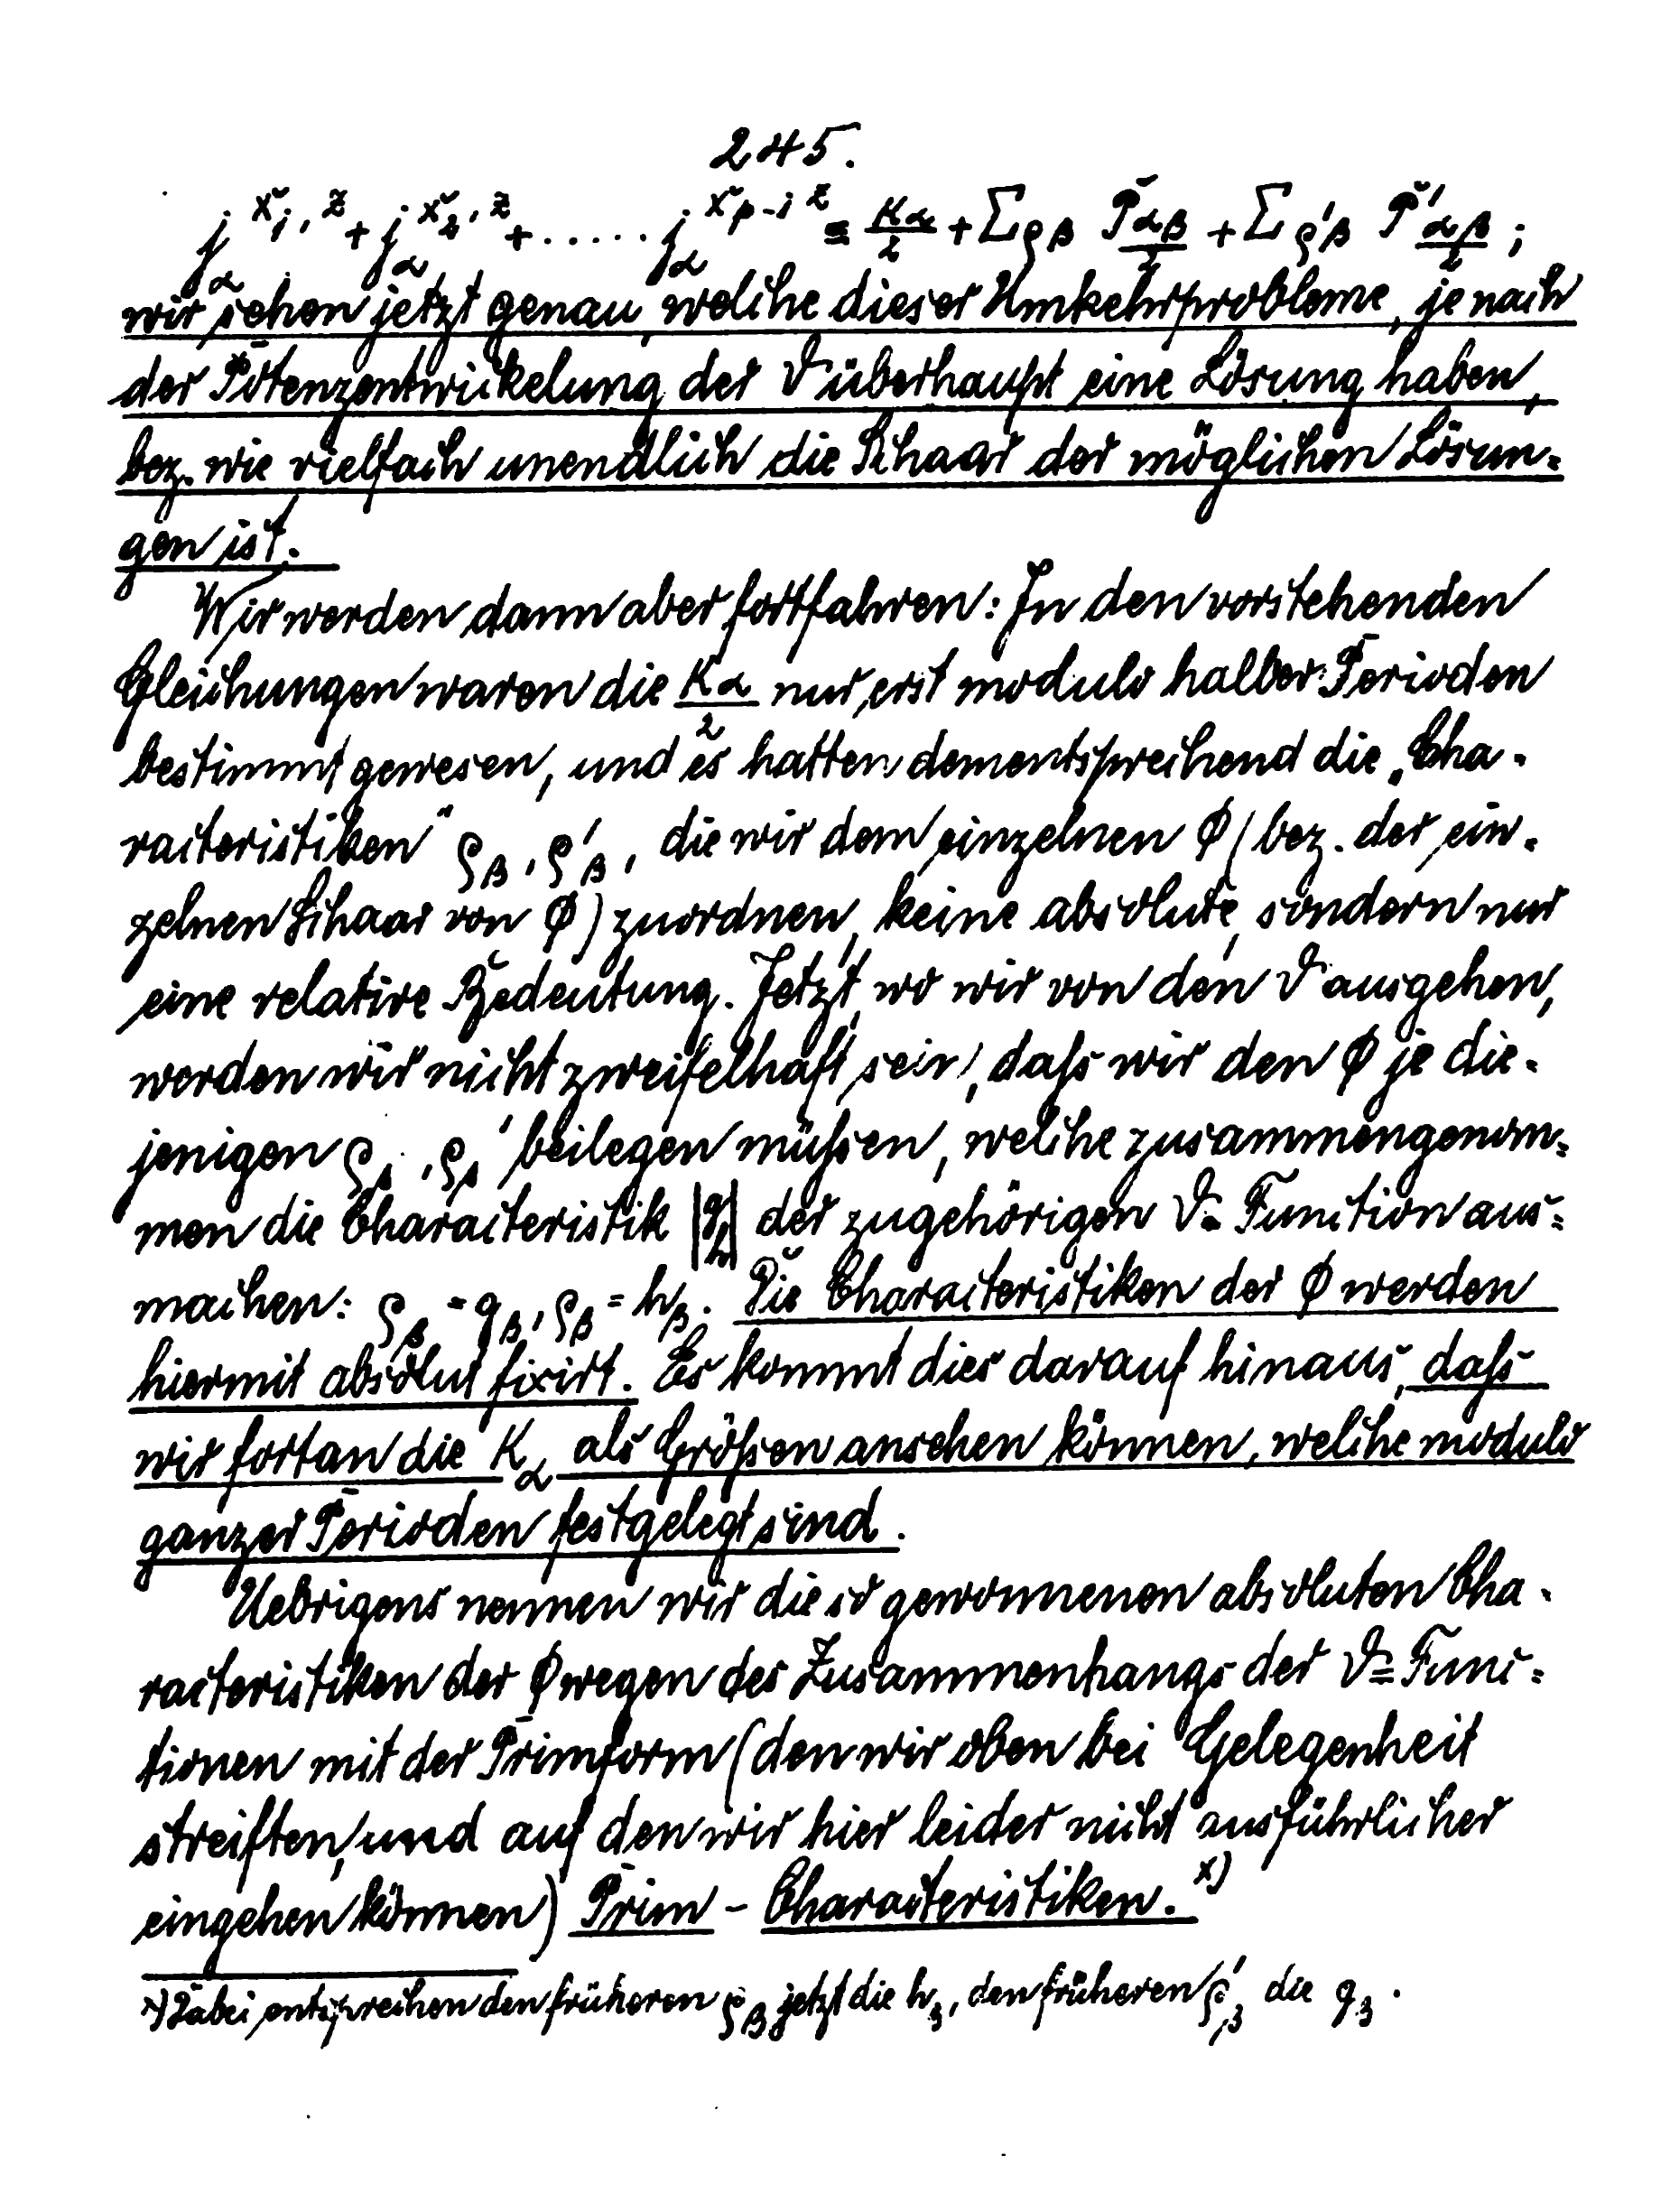 245.
j_α^{x_1, z} + j_α^{x_2, z} + ..... j_α^{x_{p-1} z} ≡ K_α/2 + Σ ρ_β P_{αβ}/2 + Σ ρ'_β P'_{αβ}/2 ;
wir sehen jetzt genau, welche dieser Umkehrprobleme, je nach
der Potenzentwickelung der ϑ überhaupt eine Lösung haben,
bez. wie vielfach unendlich die Schaar der möglichen Lösun=
gen ist.
Wir werden dann aber fortfahren: In den vorstehenden
Gleichungen waren die K_α/2 nur erst modulo halber Perioden
bestimmt gewesen, und es hatten dementsprechend die „Cha-
racteristiken" ρ_β, ρ'_β, die wir dem einzelnen Φ (bez. der ein-
zelnen Schaar von Φ) zuordnen, keine absolute, sondern nur
eine relative Bedeutung. Jetzt, wo wir von den ϑ ausgehen,
werden wir nicht zweifelhaft sein, daß wir den Φ je die-
jenigen ρ_β, ρ_β' beilegen müßen, welche zusammengenom=
men die Characteristik |g/h| der zugehörigen ϑ=Function aus=
machen: ρ_β = g_β, ρ_β = h_β. Die Characteristiken der Φ werden
hiermit absolut fixirt. Es kommt dies darauf hinaus, daß
wir fortan die K_α als Größen ansehen können, welche modulo
ganzer Perioden festgelegt sind.
Uebrigens nennen wir die so gewonnenen absoluten Cha-
racteristiken der Φ wegen des Zusammenhangs der ϑ=Func=
tionen mit der Primform (den wir oben bei Gelegenheit
streiften, und auf den wir hier leider nicht ausführlicher
eingehen können) Prim - Characteristiken. x)
x) Dabei entsprechen den früheren ρ_β jetzt die h_β, den früheren ρ'_β die g_β.